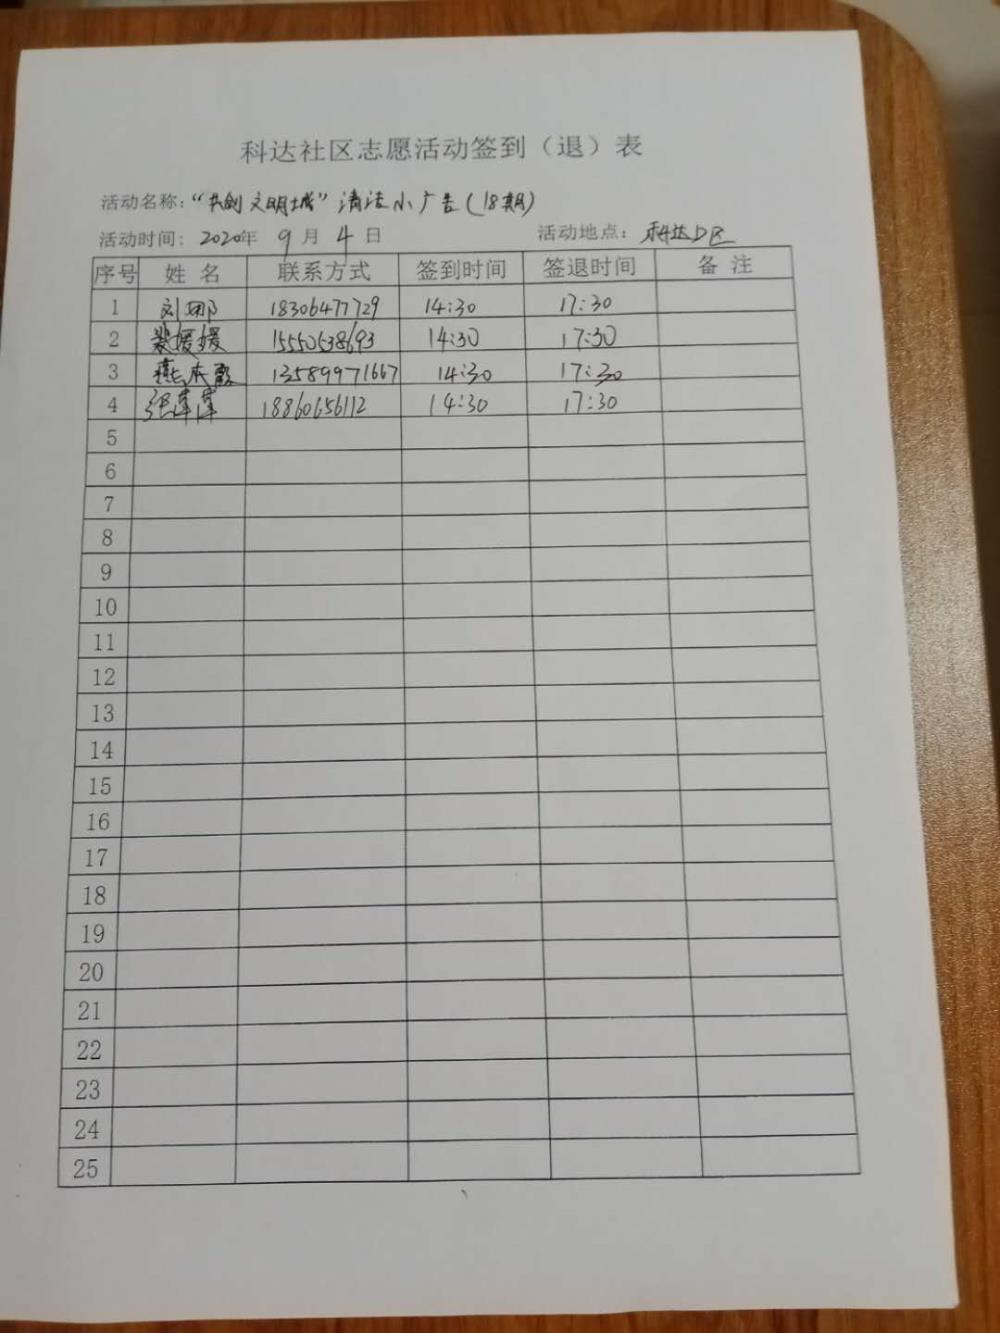 科达社区志愿活动签到（退）表
活动名称：“共创文明城”清洁小广告（18期）
活动时间：2020年 9 月 4 日 活动地点：科达D区
序号 姓 名 联系方式 签到时间 签退时间 备 注
1 刘娜 18306477729 14:30 17:30
2 裴媛媛 15550538693 14:30 17:30
3 13589971667 14:30 17:30
4 张萍萍 18860656112 14:30 17:30
5
6
7
8
9
10
11
12
13
14
15
16
17
18
19
20
21
22
23
24
25